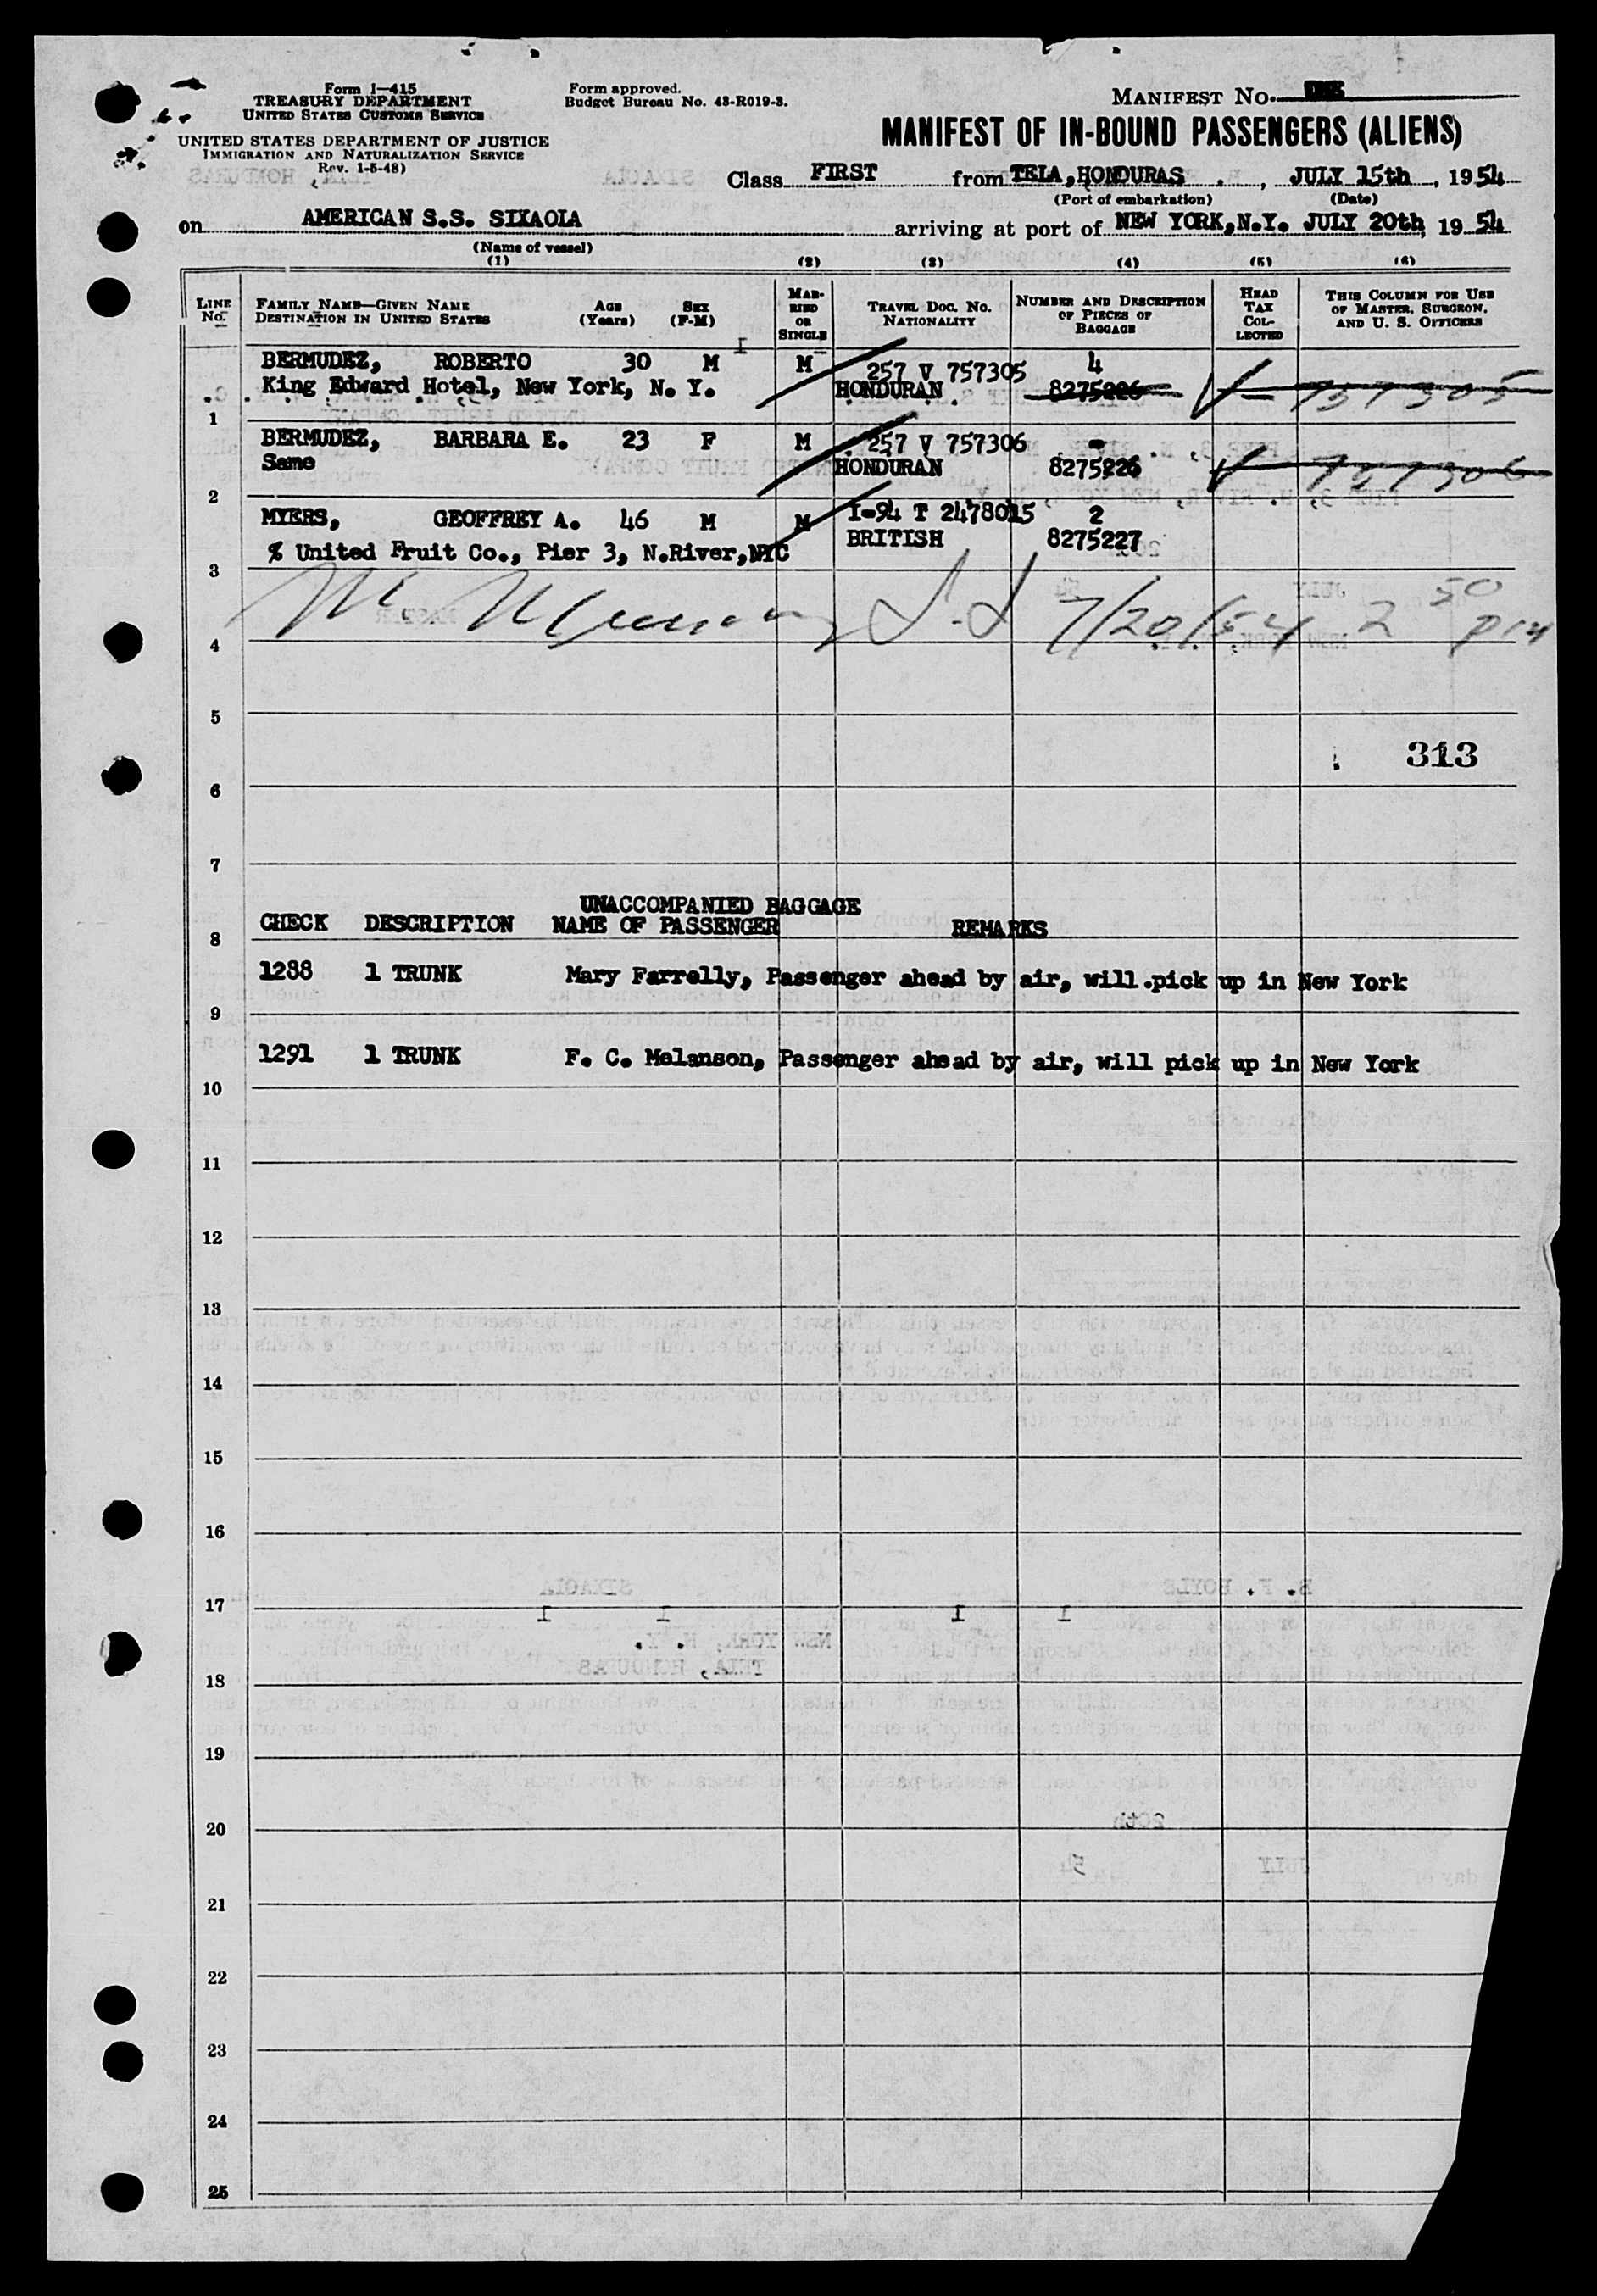 Form I-415
TREASURY DEPARTMENT
UNITED STATES CUSTOMS SERVICE
UNITED STATES DEPARTMENT OF JUSTICE
IMMIGRATION AND NATURALIZATION SERVICE
Rev. 1-5-48)
Form approved.
Budget Bureau No. 43-R019-3.
MANIFEST NO. ONE
MANIFEST OF IN-BOUND PASSENGERS (ALIENS)
Class FIRST from TELA, HONDURAS, JULY 15th, 1954
(Port of embarkation) (Date)
on AMERICAN S.S. SIXAOLA arriving at port of NEW YORK, N.Y. JULY 20th, 1954
(Name of vessel)
(1) (2) (3) (4) (5) (6)
LINE No. FAMILY NAME—GIVEN NAME DESTINATION IN UNITED STATES AGE (Years) SEX (F-M) MARRIED OR SINGLE TRAVEL DOC. NO. NATIONALITY NUMBER AND DESCRIPTION OF PIECES OF BAGGAGE HEAD TAX COLLECTED THIS COLUMN FOR USE OF MASTER, SURGEON, AND U. S. OFFICERS
BERMUDEZ, ROBERTO 30 M M 257 V 757305 4
King Edward Hotel, New York, N. Y. HONDURAN 8275226 757305
1
BERMUDEZ, BARBARA E. 23 F M 257 V 757306 -
Same HONDURAN 8275226 757306
2
MYERS, GEOFFREY A. 46 M M I-94 T 2478015 2
% United Fruit Co., Pier 3, N.River, NYC BRITISH 8275227
3
7/20/54 2 50 pm
4
5
313
6
7
UNACCOMPANIED BAGGAGE
CHECK DESCRIPTION NAME OF PASSENGER REMARKS
8
1288 1 TRUNK Mary Farrelly, Passenger ahead by air, will pick up in New York
9
1291 1 TRUNK F. C. Melanson, Passenger ahead by air, will pick up in New York
10
11
12
13
14
15
16
17
18
19
20
21
22
23
24
25